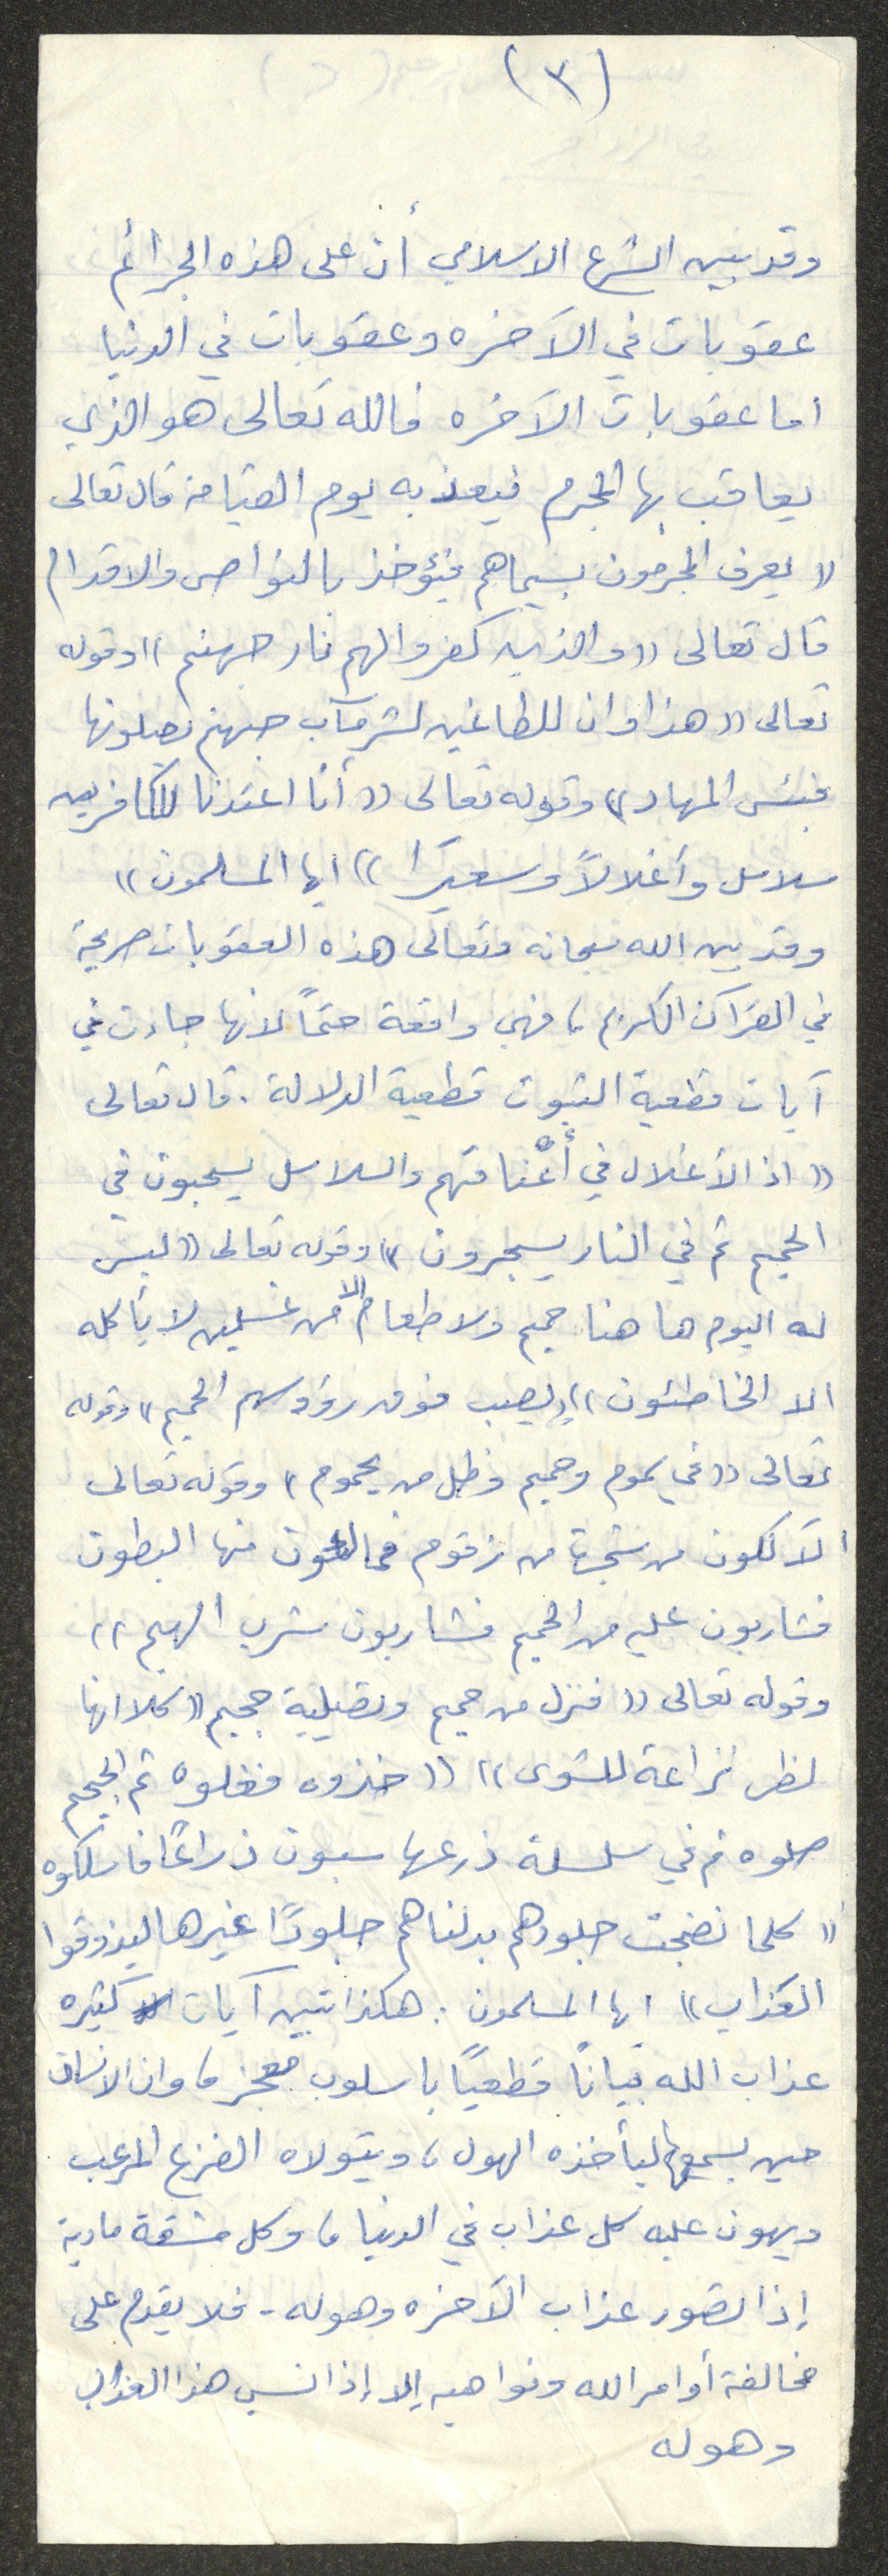 (٣)
وقد بين الشرع الاسلامي أن على هذه الجرائم
عقوبات في الآخره وعقوبات في الدنيا
اما عقوبات الآخره فالله تعالى هو الذي
يعاقب بها المجرم فيعذبه يوم القيامة قال تعالى
(( يعرف المجرمون بسيماهم فيؤخذ بالنواصي والاقدام
قال تعالى (( والذين كفروا لهم نار جهنم )) وقوله
تعالى (( هذا وان للطاغين لشر مآب جهنم يصلونها
فبئس المهاد )) وقوله تعالى (( أنا اعتدنا للكافرين
سلاسل وأغلالاً وسعيرًا )) ايها المسلمون ))
وقد بين الله سبحانه وتعالى هذه العقوبات صريحة
في القرآن الكريم ، فهي واقعة حتماً لانها جاءت في
آيات قطعية الثبوت قطعية الدلالة . قال تعالى
(( اذ الأغلال في أعْناقهم والسلاسل يسحبون في
الحميم ثم في النار يسجرون )) وقوله تعالى (( ليس
له اليوم ها هنا حميم ولا طعام الا من غسلين لا يأكله
الا الخاطئون )) (( يصب فوق رؤوسهم الحميم )) وقوله
تعالى (( في سموم وحميم وظل من يحموم )) وقوله تعالى
لآكلون من شجرة من زقوم فمالئون منها البطون
فشاربون عليه من الحميم فشاربون شرب الهيم ))
وقوله تعالى (( فنزل من حميم وتصلية جحيم (( كلا انها
لظى نزاعة للشوى )) (( خذوه فغلوه ثم الجحيم
صلوه ثم في سلسلة ذرعها سبعون ذراعًا فاسلكوه
(( كلما نضجت جلودهم بدلناهم جلودًا غيرها ليذوقوا
العذاب )) ايها المسلمون : هكذا تبين آيات كثيره
عذاب الله تبيانًا قطعيًا باسلوب معجز ، وان الانسان
حين يسمعها ليأخذه الهول ، ويتولاه الفزع المرعب
ويهون عليه كل عذاب في الدنيا ، وكل مشقة مادية
إذا تصور عذاب الآخره وهوله - فلا يقدم على
مخالفة أوامر الله ونواهيه إلا إذا نسي هذا العذاب
وهوله